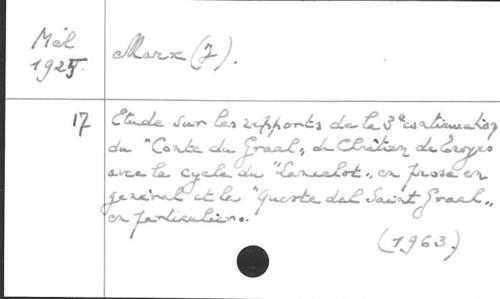 Mél
1925.
Marx (J).
17
Etude sur les rapports de la 3e continuation
du "Conte du Graal" de Chrétien de Troyes
avec le cycle du "Lancelot" en prose en
général et la "Queste del Saint Graal"
en particulier.
(1963)